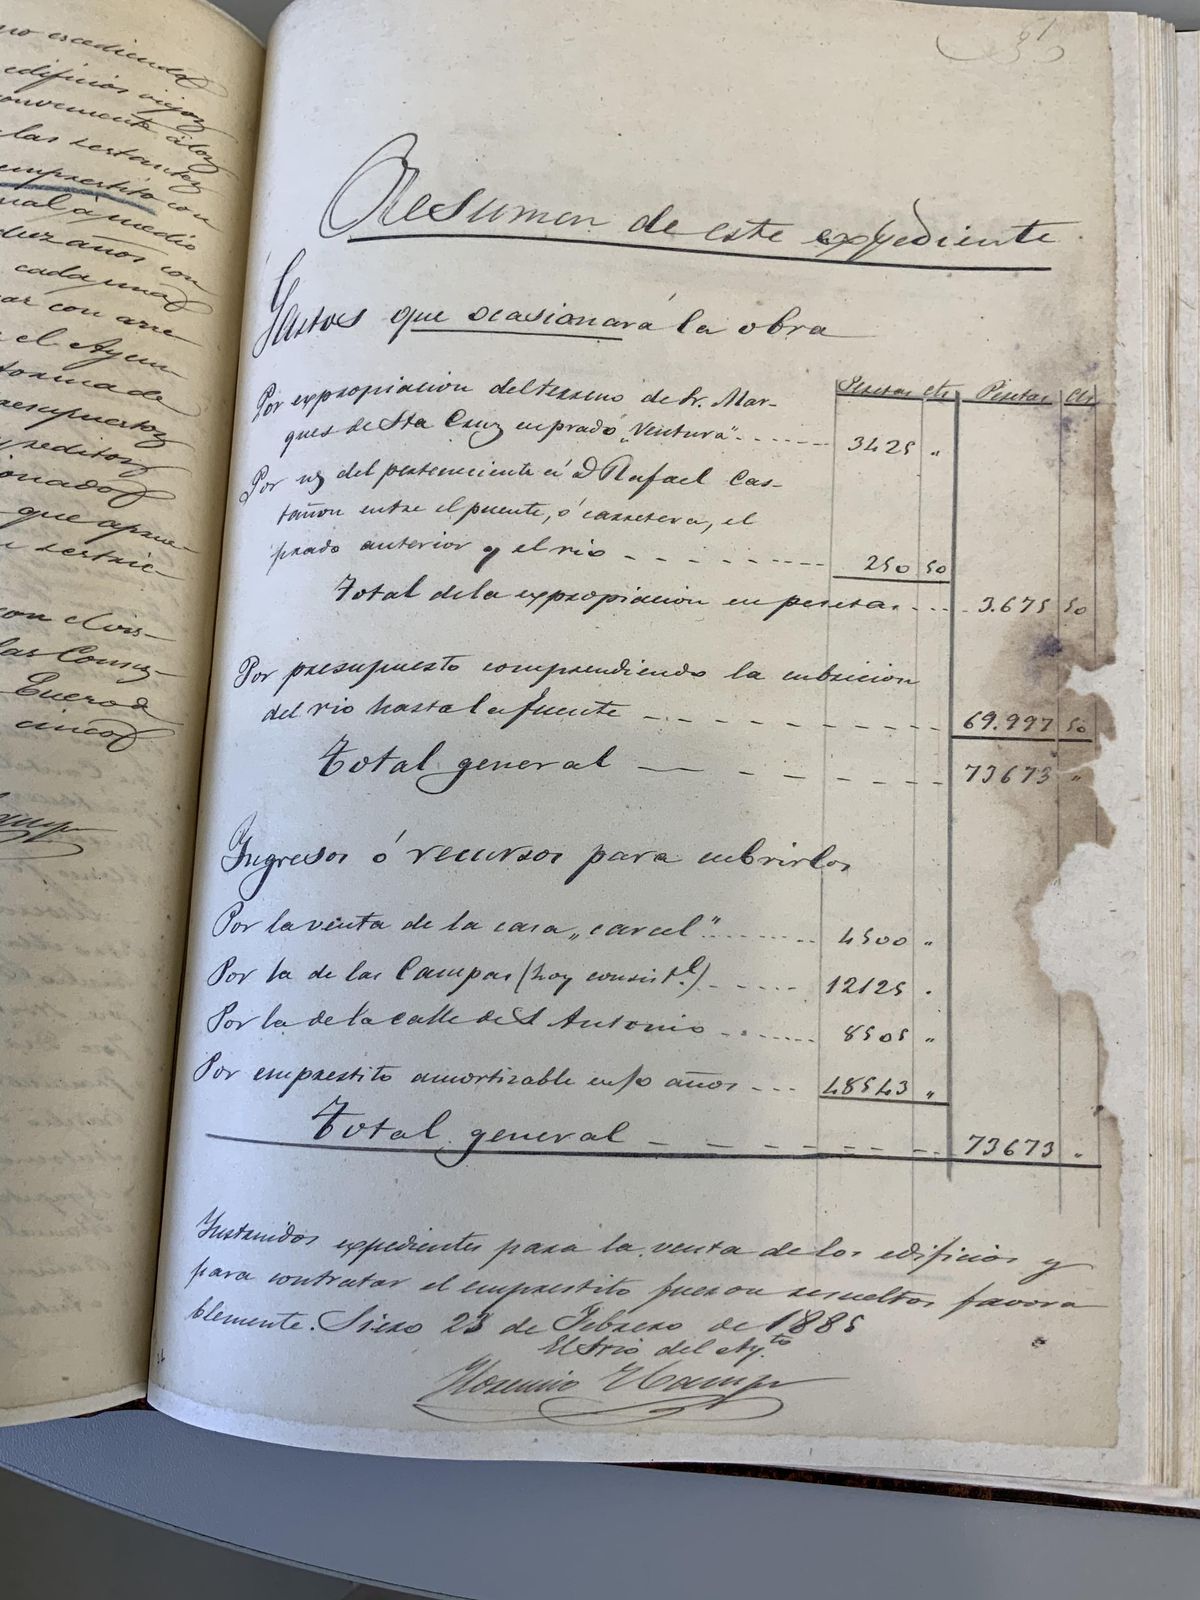 no escediendo
edificios viejos
convenmente á los
las restantes
emprestito con
nual á medio
diez años con
cada una
con arre
el Ayun-
forma de
presupuestos
y reditos
que apru-
con el vis-
las Consis-
Enero de
cinco
Resumen de este expediente
Gastos que ocasionará la obra
Pesetas cts Pesetas Cts
Por expropiacion del terreno de Sr. Mar-
ques de Sta Cruz en prado "Ventura" 3425 "
Por id del perteneciente á D Rafael Cas-
tañon entre el puente, ó carretera, el
prado anterior y el rio 250 50
Total de la expropiacion en pesetas 3.675 50
Por presupuesto comprendiendo la cubricion
del rio hasta la fuente 69.997 50
Total general 73673 "
Ingresos ó recursos para cubrirlos
Por la venta de la casa "carcel" 4500 "
Por la de las Campas (hoy consist.l) 12125 "
Por la de la calle de S Antonio 8505 "
Por emprestito amortizable en 10 años 48543 "
Total general 73673 "
Instruidos expedientes para la venta de los edificios y
para contratar el emprestito fueron resueltos favora
blemente. Siero 23 de Febrero de 1885
El Srio del Ay.to